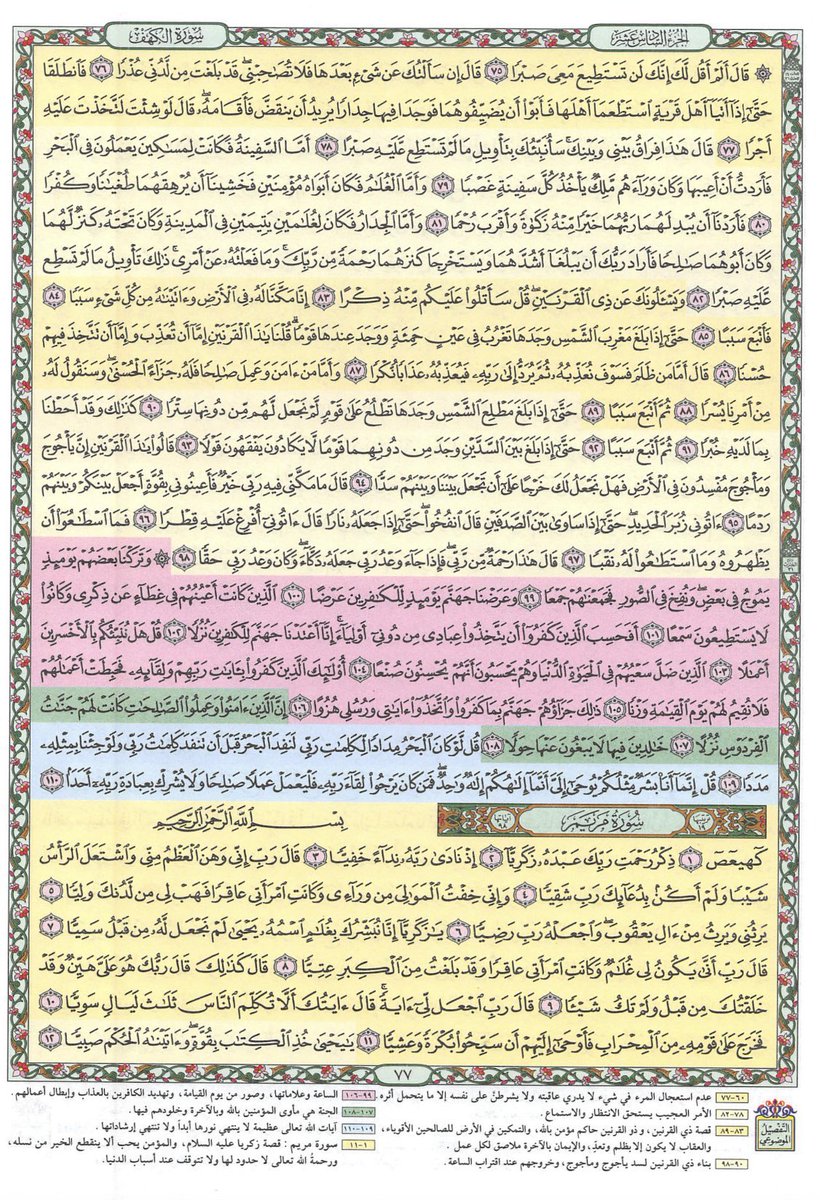 الجزء السادس عشر
سورة الكهف
۞ قَالَ أَلَمْ أَقُل لَّكَ إِنَّكَ لَن تَسْتَطِيعَ مَعِىَ صَبْرًا ٧٥ قَالَ إِن سَأَلْتُكَ عَن شَىْءٍۭ بَعْدَهَا فَلَا تُصَـٰحِبْنِى ۖ قَدْ بَلَغْتَ مِن لَّدُنِّى عُذْرًا ٧٦ فَٱنطَلَقَا
حَتَّىٰٓ إِذَآ أَتَيَآ أَهْلَ قَرْيَةٍ ٱسْتَطْعَمَآ أَهْلَهَا فَأَبَوْا۟ أَن يُضَيِّفُوهُمَا فَوَجَدَا فِيهَا جِدَارًا يُرِيدُ أَن يَنقَضَّ فَأَقَامَهُۥ ۖ قَالَ لَوْ شِئْتَ لَتَّخَذْتَ عَلَيْهِ
أَجْرًا ٧٧ قَالَ هَـٰذَا فِرَاقُ بَيْنِى وَبَيْنِكَ ۚ سَأُنَبِّئُكَ بِتَأْوِيلِ مَا لَمْ تَسْتَطِع عَّلَيْهِ صَبْرًا ٧٨ أَمَّا ٱلسَّفِينَةُ فَكَانَتْ لِمَسَـٰكِينَ يَعْمَلُونَ فِى ٱلْبَحْرِ
فَأَرَدتُّ أَنْ أَعِيبَهَا وَكَانَ وَرَآءَهُم مَّلِكٌ يَأْخُذُ كُلَّ سَفِينَةٍ غَصْبًا ٧٩ وَأَمَّا ٱلْغُلَـٰمُ فَكَانَ أَبَوَاهُ مُؤْمِنَيْنِ فَخَشِينَآ أَن يُرْهِقَهُمَا طُغْيَـٰنًا وَكُفْرًا
٨٠ فَأَرَدْنَآ أَن يُبْدِلَهُمَا رَبُّهُمَا خَيْرًا مِّنْهُ زَكَوٰةً وَأَقْرَبَ رُحْمًا ٨١ وَأَمَّا ٱلْجِدَارُ فَكَانَ لِغُلَـٰمَيْنِ يَتِيمَيْنِ فِى ٱلْمَدِينَةِ وَكَانَ تَحْتَهُۥ كَنزٌ لَّهُمَا
وَكَانَ أَبُوهُمَا صَـٰلِحًا فَأَرَادَ رَبُّكَ أَن يَبْلُغَآ أَشُدَّهُمَا وَيَسْتَخْرِجَا كَنزَهُمَا رَحْمَةً مِّن رَّبِّكَ ۚ وَمَا فَعَلْتُهُۥ عَنْ أَمْرِى ۚ ذَٰلِكَ تَأْوِيلُ مَا لَمْ تَسْطِع
عَّلَيْهِ صَبْرًا ٨٢ وَيَسْـَٔلُونَكَ عَن ذِى ٱلْقَرْنَيْنِ ۖ قُلْ سَأَتْلُوا۟ عَلَيْكُم مِّنْهُ ذِكْرًا ٨٣ إِنَّا مَكَّنَّا لَهُۥ فِى ٱلْأَرْضِ وَءَاتَيْنَـٰهُ مِن كُلِّ شَىْءٍ سَبَبًا ٨٤
فَأَتْبَعَ سَبَبًا ٨٥ حَتَّىٰٓ إِذَا بَلَغَ مَغْرِبَ ٱلشَّمْسِ وَجَدَهَا تَغْرُبُ فِى عَيْنٍ حَمِئَةٍ وَوَجَدَ عِندَهَا قَوْمًا ۗ قُلْنَا يَـٰذَا ٱلْقَرْنَيْنِ إِمَّآ أَن تُعَذِّبَ وَإِمَّآ أَن تَتَّخِذَ فِيهِمْ
حُسْنًا ٨٦ قَالَ أَمَّا مَن ظَلَمَ فَسَوْفَ نُعَذِّبُهُۥ ثُمَّ يُرَدُّ إِلَىٰ رَبِّهِۦ فَيُعَذِّبُهُۥ عَذَابًا نُّكْرًا ٨٧ وَأَمَّا مَنْ ءَامَنَ وَعَمِلَ صَـٰلِحًا فَلَهُۥ جَزَآءً ٱلْحُسْنَىٰ ۖ وَسَنَقُولُ لَهُۥ
مِنْ أَمْرِنَا يُسْرًا ٨٨ ثُمَّ أَتْبَعَ سَبَبًا ٨٩ حَتَّىٰٓ إِذَا بَلَغَ مَطْلِعَ ٱلشَّمْسِ وَجَدَهَا تَطْلُعُ عَلَىٰ قَوْمٍ لَّمْ نَجْعَل لَّهُم مِّن دُونِهَا سِتْرًا ٩٠ كَذَٰلِكَ وَقَدْ أَحَطْنَا
بِمَا لَدَيْهِ خُبْرًا ٩١ ثُمَّ أَتْبَعَ سَبَبًا ٩٢ حَتَّىٰٓ إِذَا بَلَغَ بَيْنَ ٱلسَّدَّيْنِ وَجَدَ مِن دُونِهِمَا قَوْمًا لَّا يَكَادُونَ يَفْقَهُونَ قَوْلًا ٩٣ قَالُوا۟ يَـٰذَا ٱلْقَرْنَيْنِ إِنَّ يَأْجُوجَ
وَمَأْجُوجَ مُفْسِدُونَ فِى ٱلْأَرْضِ فَهَلْ نَجْعَلُ لَكَ خَرْجًا عَلَىٰٓ أَن تَجْعَلَ بَيْنَنَا وَبَيْنَهُمْ سَدًّا ٩٤ قَالَ مَا مَكَّنِّى فِيهِ رَبِّى خَيْرٌ فَأَعِينُونِى بِقُوَّةٍ أَجْعَلْ بَيْنَكُمْ وَبَيْنَهُمْ
رَدْمًا ٩٥ ءَاتُونِى زُبَرَ ٱلْحَدِيدِ ۖ حَتَّىٰٓ إِذَا سَاوَىٰ بَيْنَ ٱلصَّدَفَيْنِ قَالَ ٱنفُخُوا۟ ۖ حَتَّىٰٓ إِذَا جَعَلَهُۥ نَارًا قَالَ ءَاتُونِىٓ أُفْرِغْ عَلَيْهِ قِطْرًا ٩٦ فَمَا ٱسْطَـٰعُوٓا۟ أَن
يَظْهَرُوهُ وَمَا ٱسْتَطَـٰعُوا۟ لَهُۥ نَقْبًا ٩٧ قَالَ هَـٰذَا رَحْمَةٌ مِّن رَّبِّى ۖ فَإِذَا جَآءَ وَعْدُ رَبِّى جَعَلَهُۥ دَكَّآءَ ۖ وَكَانَ وَعْدُ رَبِّى حَقًّا ٩٨ ۞ وَتَرَكْنَا بَعْضَهُمْ يَوْمَئِذٍ
يَمُوجُ فِى بَعْضٍ ۖ وَنُفِخَ فِى ٱلصُّورِ فَجَمَعْنَـٰهُمْ جَمْعًا ٩٩ وَعَرَضْنَا جَهَنَّمَ يَوْمَئِذٍ لِّلْكَـٰفِرِينَ عَرْضًا ١٠٠ ٱلَّذِينَ كَانَتْ أَعْيُنُهُمْ فِى غِطَآءٍ عَن ذِكْرِى وَكَانُوا۟
لَا يَسْتَطِيعُونَ سَمْعًا ١٠١ أَفَحَسِبَ ٱلَّذِينَ كَفَرُوٓا۟ أَن يَتَّخِذُوا۟ عِبَادِى مِن دُونِىٓ أَوْلِيَآءَ ۚ إِنَّآ أَعْتَدْنَا جَهَنَّمَ لِلْكَـٰفِرِينَ نُزُلًا ١٠٢ قُلْ هَلْ نُنَبِّئُكُم بِٱلْأَخْسَرِينَ
أَعْمَـٰلًا ١٠٣ ٱلَّذِينَ ضَلَّ سَعْيُهُمْ فِى ٱلْحَيَوٰةِ ٱلدُّنْيَا وَهُمْ يَحْسَبُونَ أَنَّهُمْ يُحْسِنُونَ صُنْعًا ١٠٤ أُو۟لَـٰٓئِكَ ٱلَّذِينَ كَفَرُوا۟ بِـَٔايَـٰتِ رَبِّهِمْ وَلِقَآئِهِۦ فَحَبِطَتْ أَعْمَـٰلُهُمْ
فَلَا نُقِيمُ لَهُمْ يَوْمَ ٱلْقِيَـٰمَةِ وَزْنًا ١٠٥ ذَٰلِكَ جَزَآؤُهُمْ جَهَنَّمُ بِمَا كَفَرُوا۟ وَٱتَّخَذُوٓا۟ ءَايَـٰتِى وَرُسُلِى هُزُوًا ١٠٦ إِنَّ ٱلَّذِينَ ءَامَنُوا۟ وَعَمِلُوا۟ ٱلصَّـٰلِحَـٰتِ كَانَتْ لَهُمْ جَنَّـٰتُ
ٱلْفِرْدَوْسِ نُزُلًا ١٠٧ خَـٰلِدِينَ فِيهَا لَا يَبْغُونَ عَنْهَا حِوَلًا ١٠٨ قُل لَّوْ كَانَ ٱلْبَحْرُ مِدَادًا لِّكَلِمَـٰتِ رَبِّى لَنَفِدَ ٱلْبَحْرُ قَبْلَ أَن تَنفَدَ كَلِمَـٰتُ رَبِّى وَلَوْ جِئْنَا بِمِثْلِهِۦ
مَدَدًا ١٠٩ قُلْ إِنَّمَآ أَنَا۠ بَشَرٌ مِّثْلُكُمْ يُوحَىٰٓ إِلَىَّ أَنَّمَآ إِلَـٰهُكُمْ إِلَـٰهٌ وَٰحِدٌ ۖ فَمَن كَانَ يَرْجُوا۟ لِقَآءَ رَبِّهِۦ فَلْيَعْمَلْ عَمَلًا صَـٰلِحًا وَلَا يُشْرِكْ بِعِبَادَةِ رَبِّهِۦٓ أَحَدًۢا ١١٠
ترتيبها ١٩ سورة مريم آياتها ٩٨
بِسْمِ ٱللَّهِ ٱلرَّحْمَـٰنِ ٱلرَّحِيمِ
كٓهيعٓصٓ ١ ذِكْرُ رَحْمَتِ رَبِّكَ عَبْدَهُۥ زَكَرِيَّآ ٢ إِذْ نَادَىٰ رَبَّهُۥ نِدَآءً خَفِيًّا ٣ قَالَ رَبِّ إِنِّى وَهَنَ ٱلْعَظْمُ مِنِّى وَٱشْتَعَلَ ٱلرَّأْسُ
شَيْبًا وَلَمْ أَكُنۢ بِدُعَآئِكَ رَبِّ شَقِيًّا ٤ وَإِنِّى خِفْتُ ٱلْمَوَٰلِىَ مِن وَرَآءِى وَكَانَتِ ٱمْرَأَتِى عَاقِرًا فَهَبْ لِى مِن لَّدُنكَ وَلِيًّا ٥
يَرِثُنِى وَيَرِثُ مِنْ ءَالِ يَعْقُوبَ ۖ وَٱجْعَلْهُ رَبِّ رَضِيًّا ٦ يَـٰزَكَرِيَّآ إِنَّا نُبَشِّرُكَ بِغُلَـٰمٍ ٱسْمُهُۥ يَحْيَىٰ لَمْ نَجْعَل لَّهُۥ مِن قَبْلُ سَمِيًّا ٧
قَالَ رَبِّ أَنَّىٰ يَكُونُ لِى غُلَـٰمٌ وَكَانَتِ ٱمْرَأَتِى عَاقِرًا وَقَدْ بَلَغْتُ مِنَ ٱلْكِبَرِ عِتِيًّا ٨ قَالَ كَذَٰلِكَ قَالَ رَبُّكَ هُوَ عَلَىَّ هَيِّنٌ وَقَدْ
خَلَقْتُكَ مِن قَبْلُ وَلَمْ تَكُ شَيْـًٔا ٩ قَالَ رَبِّ ٱجْعَل لِّىٓ ءَايَةً ۚ قَالَ ءَايَتُكَ أَلَّا تُكَلِّمَ ٱلنَّاسَ ثَلَـٰثَ لَيَالٍ سَوِيًّا ١٠
فَخَرَجَ عَلَىٰ قَوْمِهِۦ مِنَ ٱلْمِحْرَابِ فَأَوْحَىٰٓ إِلَيْهِمْ أَن سَبِّحُوا۟ بُكْرَةً وَعَشِيًّا ١١ يَـٰيَحْيَىٰ خُذِ ٱلْكِتَـٰبَ بِقُوَّةٍ ۖ وَءَاتَيْنَـٰهُ ٱلْحُكْمَ صَبِيًّا ١٢
٧٧
التفصيل الموضوعي
٦٠-٧٧ عدم استعجال المرء في شيء لا يدري عاقبته ولا يشرطنَّ على نفسه إلا ما يتحمل أثره.
٧٨-٨٢ الأمر العجيب يستحق الانتظار والاستماع.
٨٣-٨٩ قصة ذي القرنين، وذو القرنين حاكم مؤمن بالله، والتمكين في الأرض للصالحين الأقوياء،
والعقاب لا يكون إلا بظلم وتعدٍّ، والإيمان بالآخرة ملاصق لكل عمل.
٩٠-٩٨ بناء ذي القرنين لسد يأجوج ومأجوج، وخروجهم عند اقتراب الساعة.
٩٩-١٠٦ الساعة وعلاماتها، وصور من يوم القيامة، وتهديد الكافرين بالعذاب وإبطال أعمالهم.
١٠٧-١٠٨ الجنة هي مأوى المؤمنين بالله وبالآخرة وخلودهم فيها.
١٠٩-١١٠ آيات الله تعالى عظيمة لا ينتهي نورها أبداً ولا تنتهي إرشاداتها.
١-١١ سورة مريم: قصة زكريا عليه السلام، والمؤمن يحب ألا ينقطع الخير من نسله،
ورحمةُ الله تعالى لا حدود لها ولا تتوقف عند أسباب الدنيا.